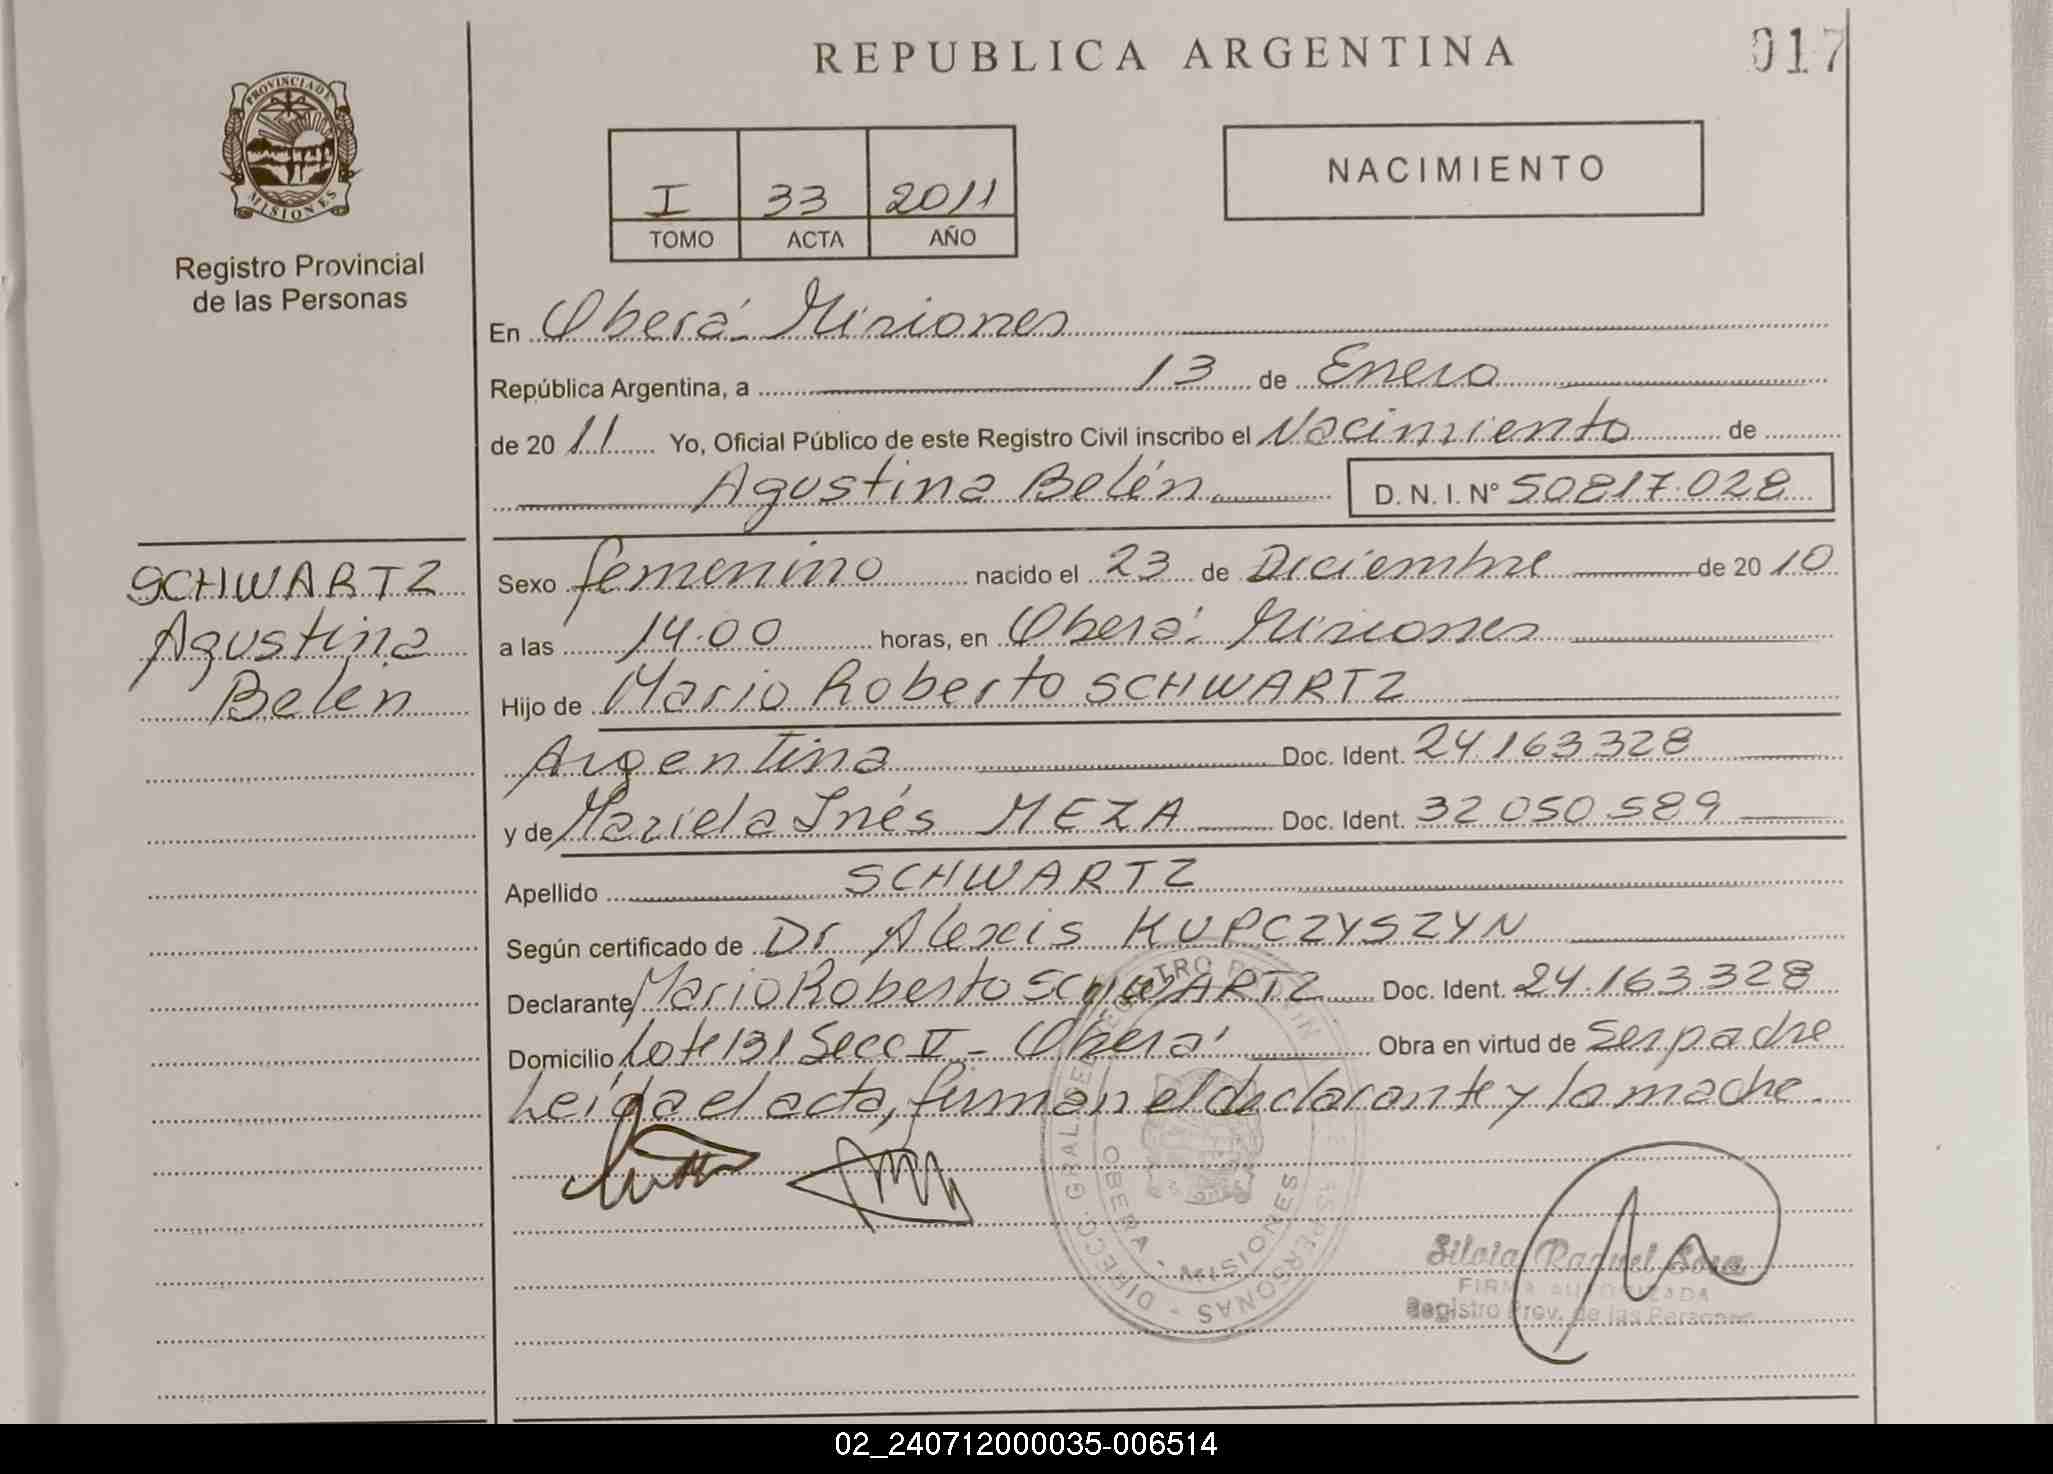 REPUBLICA ARGENTINA
017
PROVINCIA DE
MISIONES
Registro Provincial
de las Personas
I 33 2011
TOMO ACTA AÑO
NACIMIENTO
En Oberá Misiones
República Argentina, a 13 de Enero
de 20 11 Yo, Oficial Público de este Registro Civil inscribo el Nacimiento de
Agustina Belén D. N. I. Nº 50817.028
SCHWARTZ
Agustina
Belén
Sexo femenino nacido el 23 de Diciembre de 20 10
a las 14.00 horas, en Oberá Misiones
Hijo de Mario Roberto SCHWARTZ
Argentina Doc. Ident. 24.163.328
y de Mariela Inés MEZA Doc. Ident. 32.050.589
Apellido SCHWARTZ
Según certificado de Dr Alexis KUPCZYSZYN
Declarante Mario Roberto SCHWARTZ Doc. Ident. 24.163.328
Domicilio Lote 131 Secc II - Oberá Obra en virtud de Ser padre
Leída el acta, firman el declarante y la madre.
OBERA - MISIONES
Silvia Raquel
FIRMA AUTORIZADA
Registro Prov. de las Personas
02_240712000035-006514